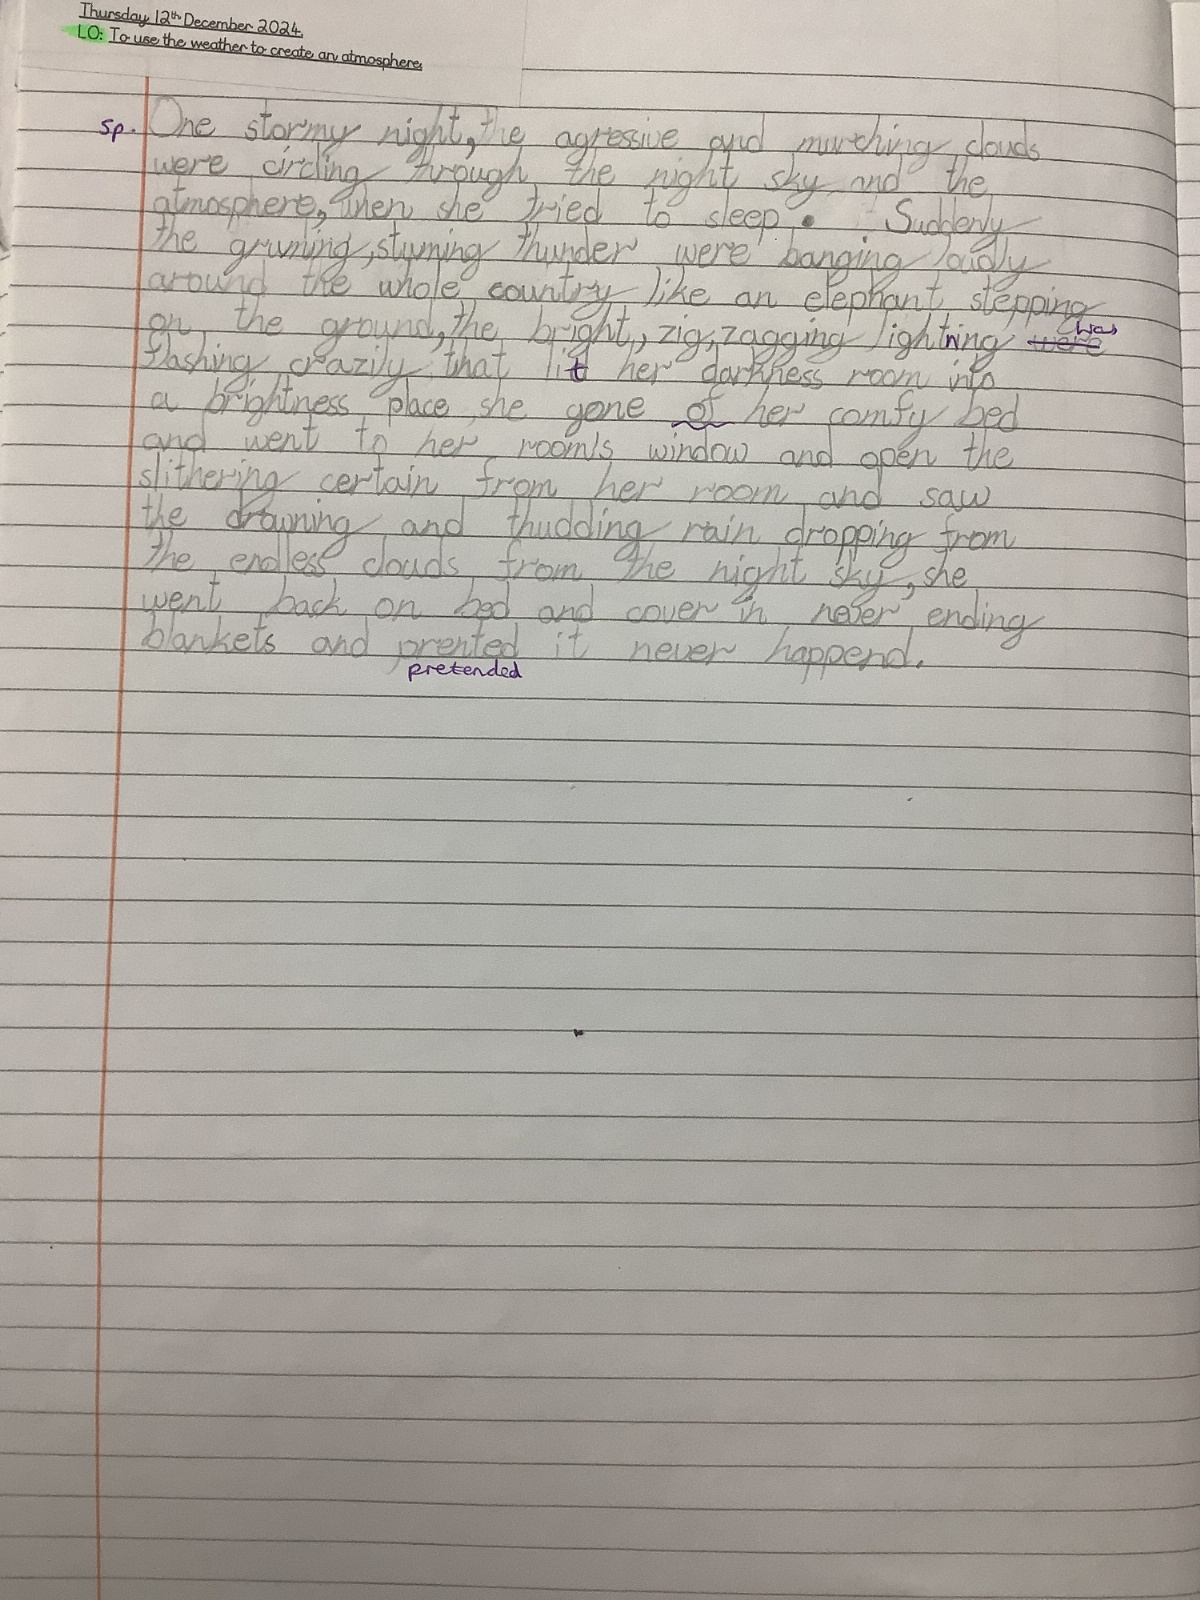 Thursday 12th December 2024.
LO: To use the weather to create an atmosphere.
sp. One stormy night, the agressive and murching clouds
were circling through the night sky and the
atmosphere, when she tried to sleep. Suddenly
the gruning, stuming thunder were banging loudly
around the whole country like an elephant stepping
on the ground, the bright, zig, zagging lightning were was
flashing crazily that lit her darkness room into
a brightness place, she gone of her comfy bed
and went to her room's window and open the
slithering certain from her room and saw
the drowning and thudding rain dropping from
the endless clouds from the night sky, she
went back on bed and cover in never ending
blankets and prented it never happend.
pretended